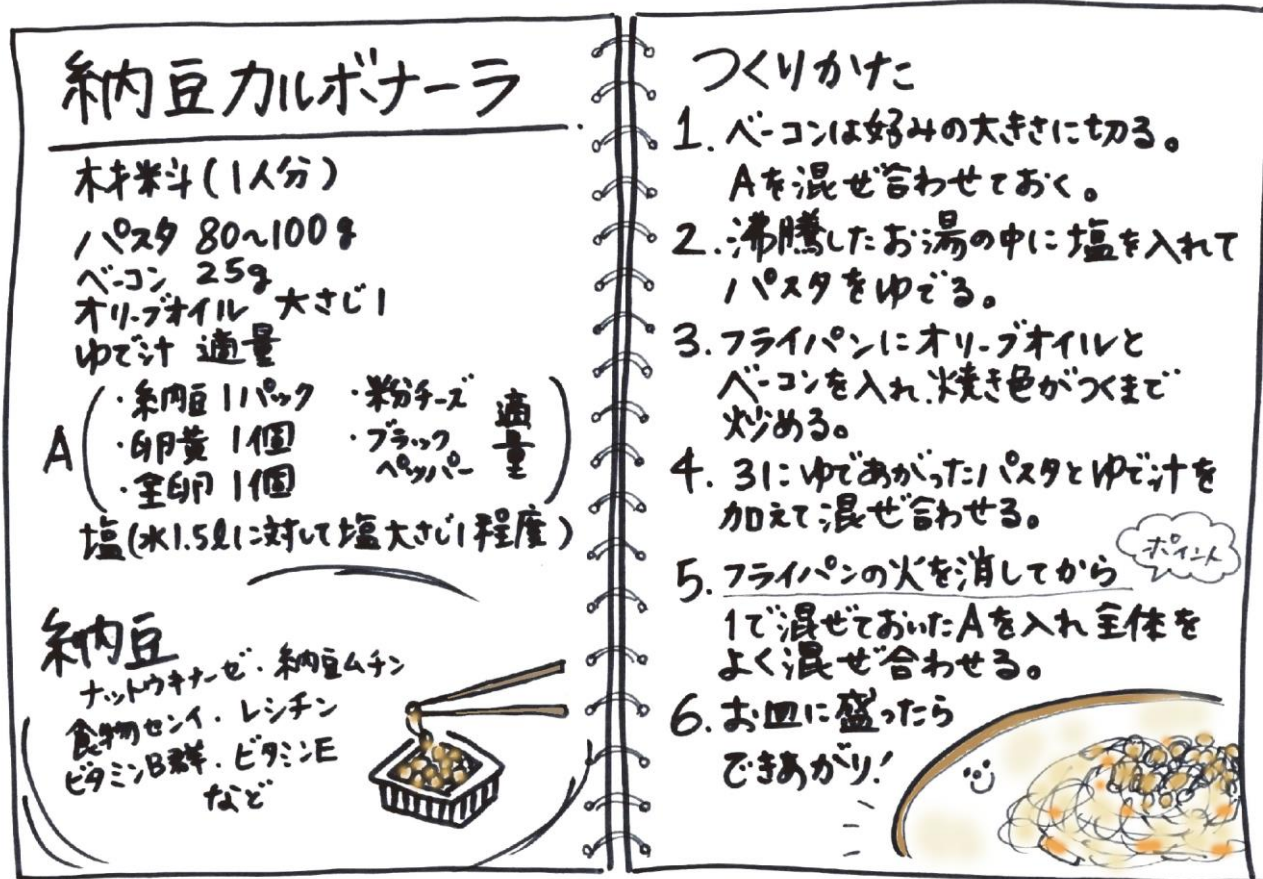 納豆カルボナーラ
材料(1人分)
パスタ 80~100g
ベーコン 25g
オリーブオイル 大さじ1
ゆで汁 適量
A
・納豆 1パック
・卵黄 1個
・全卵 1個
・粉チーズ
・ブラック
ペッパー
適量
塩(水1.5lに対して塩大さじ1程度)
納豆
ナットウキナーゼ・納豆ムチン
食物センイ・レシチン
ビタミンB群・ビタミンE
など
つくりかた
1. ベーコンは好みの大きさに切る。
Aを混ぜ合わせておく。
2. 沸騰したお湯の中に塩を入れて
パスタをゆでる。
3. フライパンにオリーブオイルと
ベーコンを入れ、焼き色がつくまで
炒める。
4. 3にゆであがったパスタとゆで汁を
加えて混ぜ合わせる。
ポイント
5. フライパンの火を消してから
1で混ぜておいたAを入れ全体を
よく混ぜ合わせる。
6. お皿に盛ったら
できあがり!